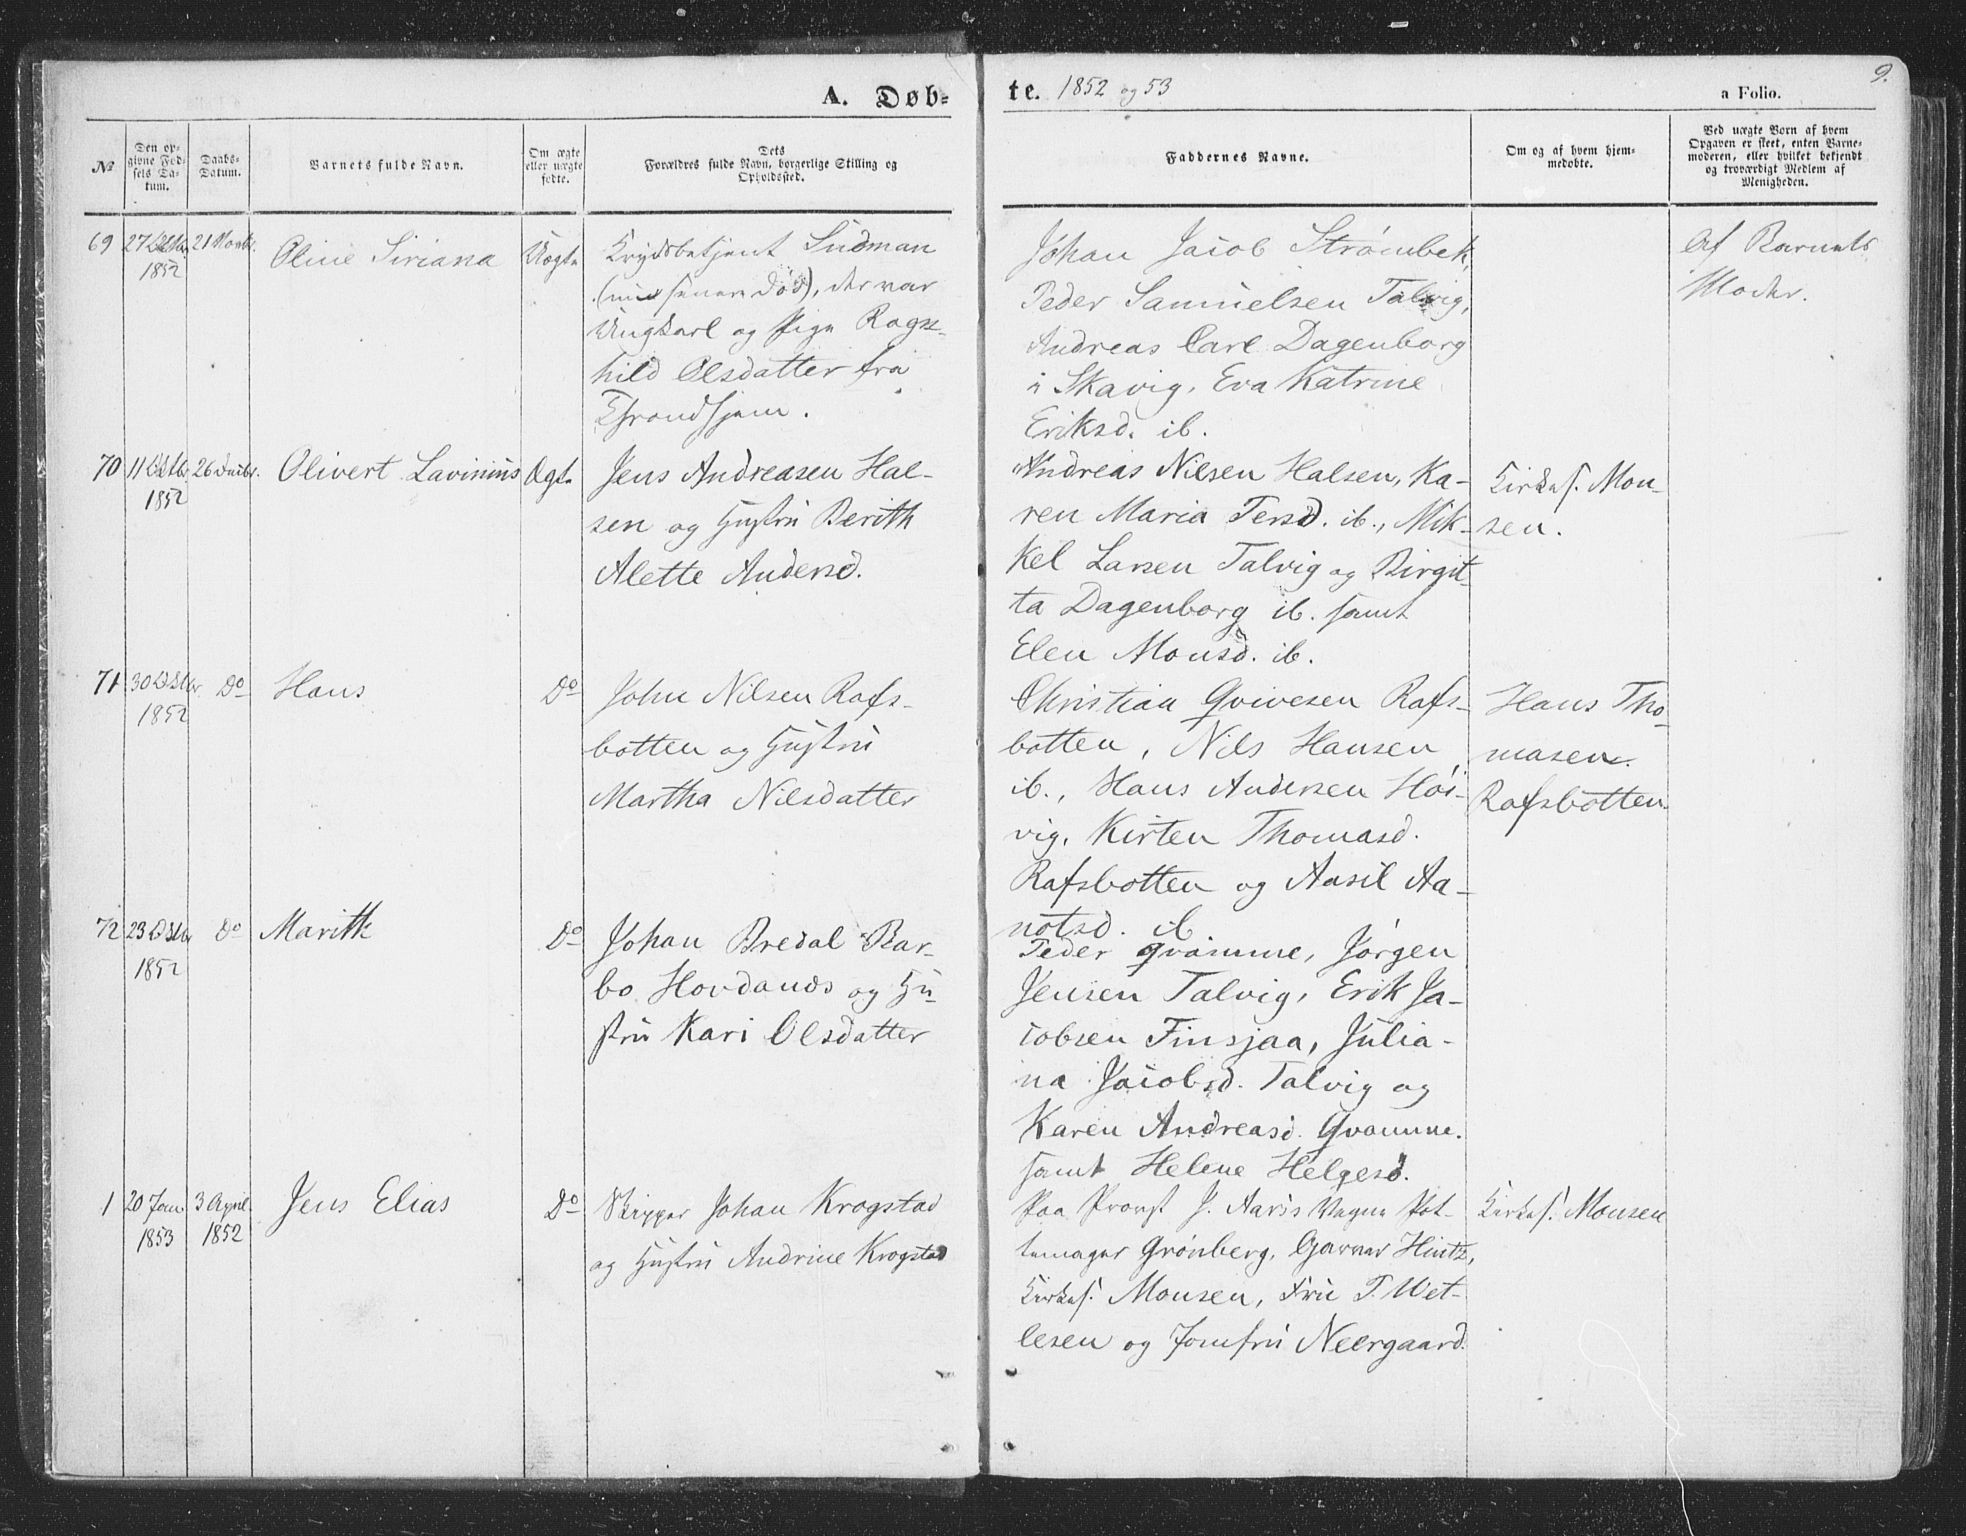 A. Døb-
te. 1852 og 53
a Folio.
9.
No
Den op-
givne Fød-
sels Da-
tum.
Daabs-
Datum.
Barnets fulde Navn.
Om ægte
eller uægte
fødte.
Dets
Forældres fulde Navn, borgerlige Stilling og
Opholdssted.
Faddernes Navne.
Om og af hvem hjem-
medøbte.
Ved uægte Børn af hvem
Opgaven er skeet, enten Barne-
moderen, eller hvilket bekjendt
og troværdigt Medlem af
Menigheden.
69
27 Oktbr
1852
21 Novbr.
Oline Siriana
Uægte
Krydsbetjent Sudman
senere død), der var
Ungkarl og Pige Ragn-
hild Olsdatter fra
Throndhjem.
Johan Jacob Strømbek,
Peder Samuelsen Talvig,
Andreas Carl Dagenborg
i Skavig, Eva Katrine
Eriksd. ib.
Af Barnets
Moder.
70
11 Oktbr
1852
26 Decbr.
Olivert Lavinius
Ægte
Jens Andreasen Hal-
sen og Hustru Berith
Alette Andersd.
Andreas Nilsen Halsen, Ka-
ren Maria Persd. ib., Mik-
kel Larsen Talvig og Birgit-
ta Dagenborg ib. samt
Elen Monsd. ib.
Kirkes. Mon-
sen.
71
30
1852
Do
Hans
Do
John Nilsen Rafs-
botten og Hustru
Martha Nilsdatter
Christian Qvivesen Rafs-
botten, Nils Hansen
ib., Hans Andersen Høi-
vig, Kirten Thomasd.
Rafsbotten og Aasil Aa-
notsd. ib
Hans Tho-
masen
Rafsbotten
72
23
1852
Do
Marith
Do
Johan Bredal Bar-
bo Hovdanæs og Hu-
stru Kari Olsdatter
Peder Qvamme, Jørgen
Jensen Talvig, Erik Ja-
cobsen Finsjaa, Julia-
na Jacobsd. Talvig og
Karen Andreasd. Qvamme.
samt Helene Helgesd.
1
20 Jan
1853
3 April
1852
Jens Elias
Do
Skipper Johan Krogstad
og Hustru Andrine Krogstad
Paa Provst J. Aaris Vegne Pot-
temager Grønberg, Garver Hintz,
Kirkes. Monsen, Fru T. Wet-
lesen og Jomfru Neergaard.
Kirkes. Monsen